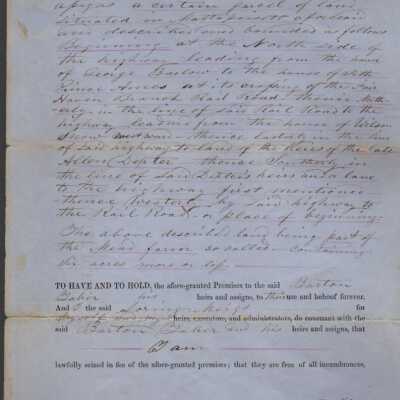 assigns a certain parcel of land
situated in Mattapoisett aforesaid
and described and bounded as follows
Beginning at the North side of
the highway leading from the house
of George Barlow to the house of Seth
Ames at its crossing of the Fair
Haven Branch Rail Road thence North-
erly in the line of said Rail Road to the
highway leading from the house of Wilson
Snow westward thence Easterly in the line
of said highway to land of the Heirs of the late
Dexter thence Southerly in
the line of said Dexter's heirs land
to the highway first mentioned
thence Westerly by said highway to
the Rail Road or place of beginning.
The above described land being part of
the Mead farm so called containing
six acres more or less
TO HAVE AND TO HOLD, the afore-granted Premises to the said Barton
Baker his heirs and assigns, to their use and behoof forever.
And I the said for
myself and my heirs, executors, and administrators, do covenant with the
said Barton Baker and his heirs and assigns, that
I am
lawfully seized in fee of the afore-granted premises; that they are free of all incumbrances,